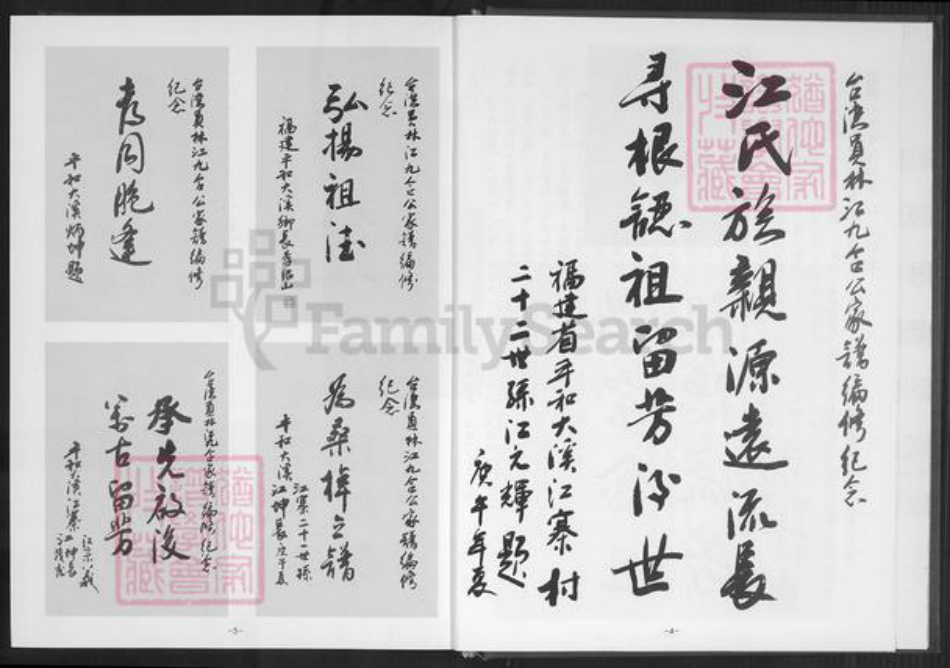 台灣員林江九合公家譜編修紀念
江氏族親源遠流長
尋根認祖留芳後世
福建省平和大溪江寨村
二十二世孫江元輝題
庚午年夏
-4-
台灣員林江九合公家譜編修
紀念
弘揚祖德
福建平和大溪鄉長李紹山
台灣員林江九合公家譜編修
紀念
同胞逢
平和大溪炳坤題
台灣員林江九合公家譜編修
紀念
為桑梓立譜
江寨二十一世孫
平和大溪江坤長庚午夏
台灣員林江九合公家譜編修紀念
承先啟後
萬古留芳
平和大溪江寨江坤長
-5-
FamilySearch